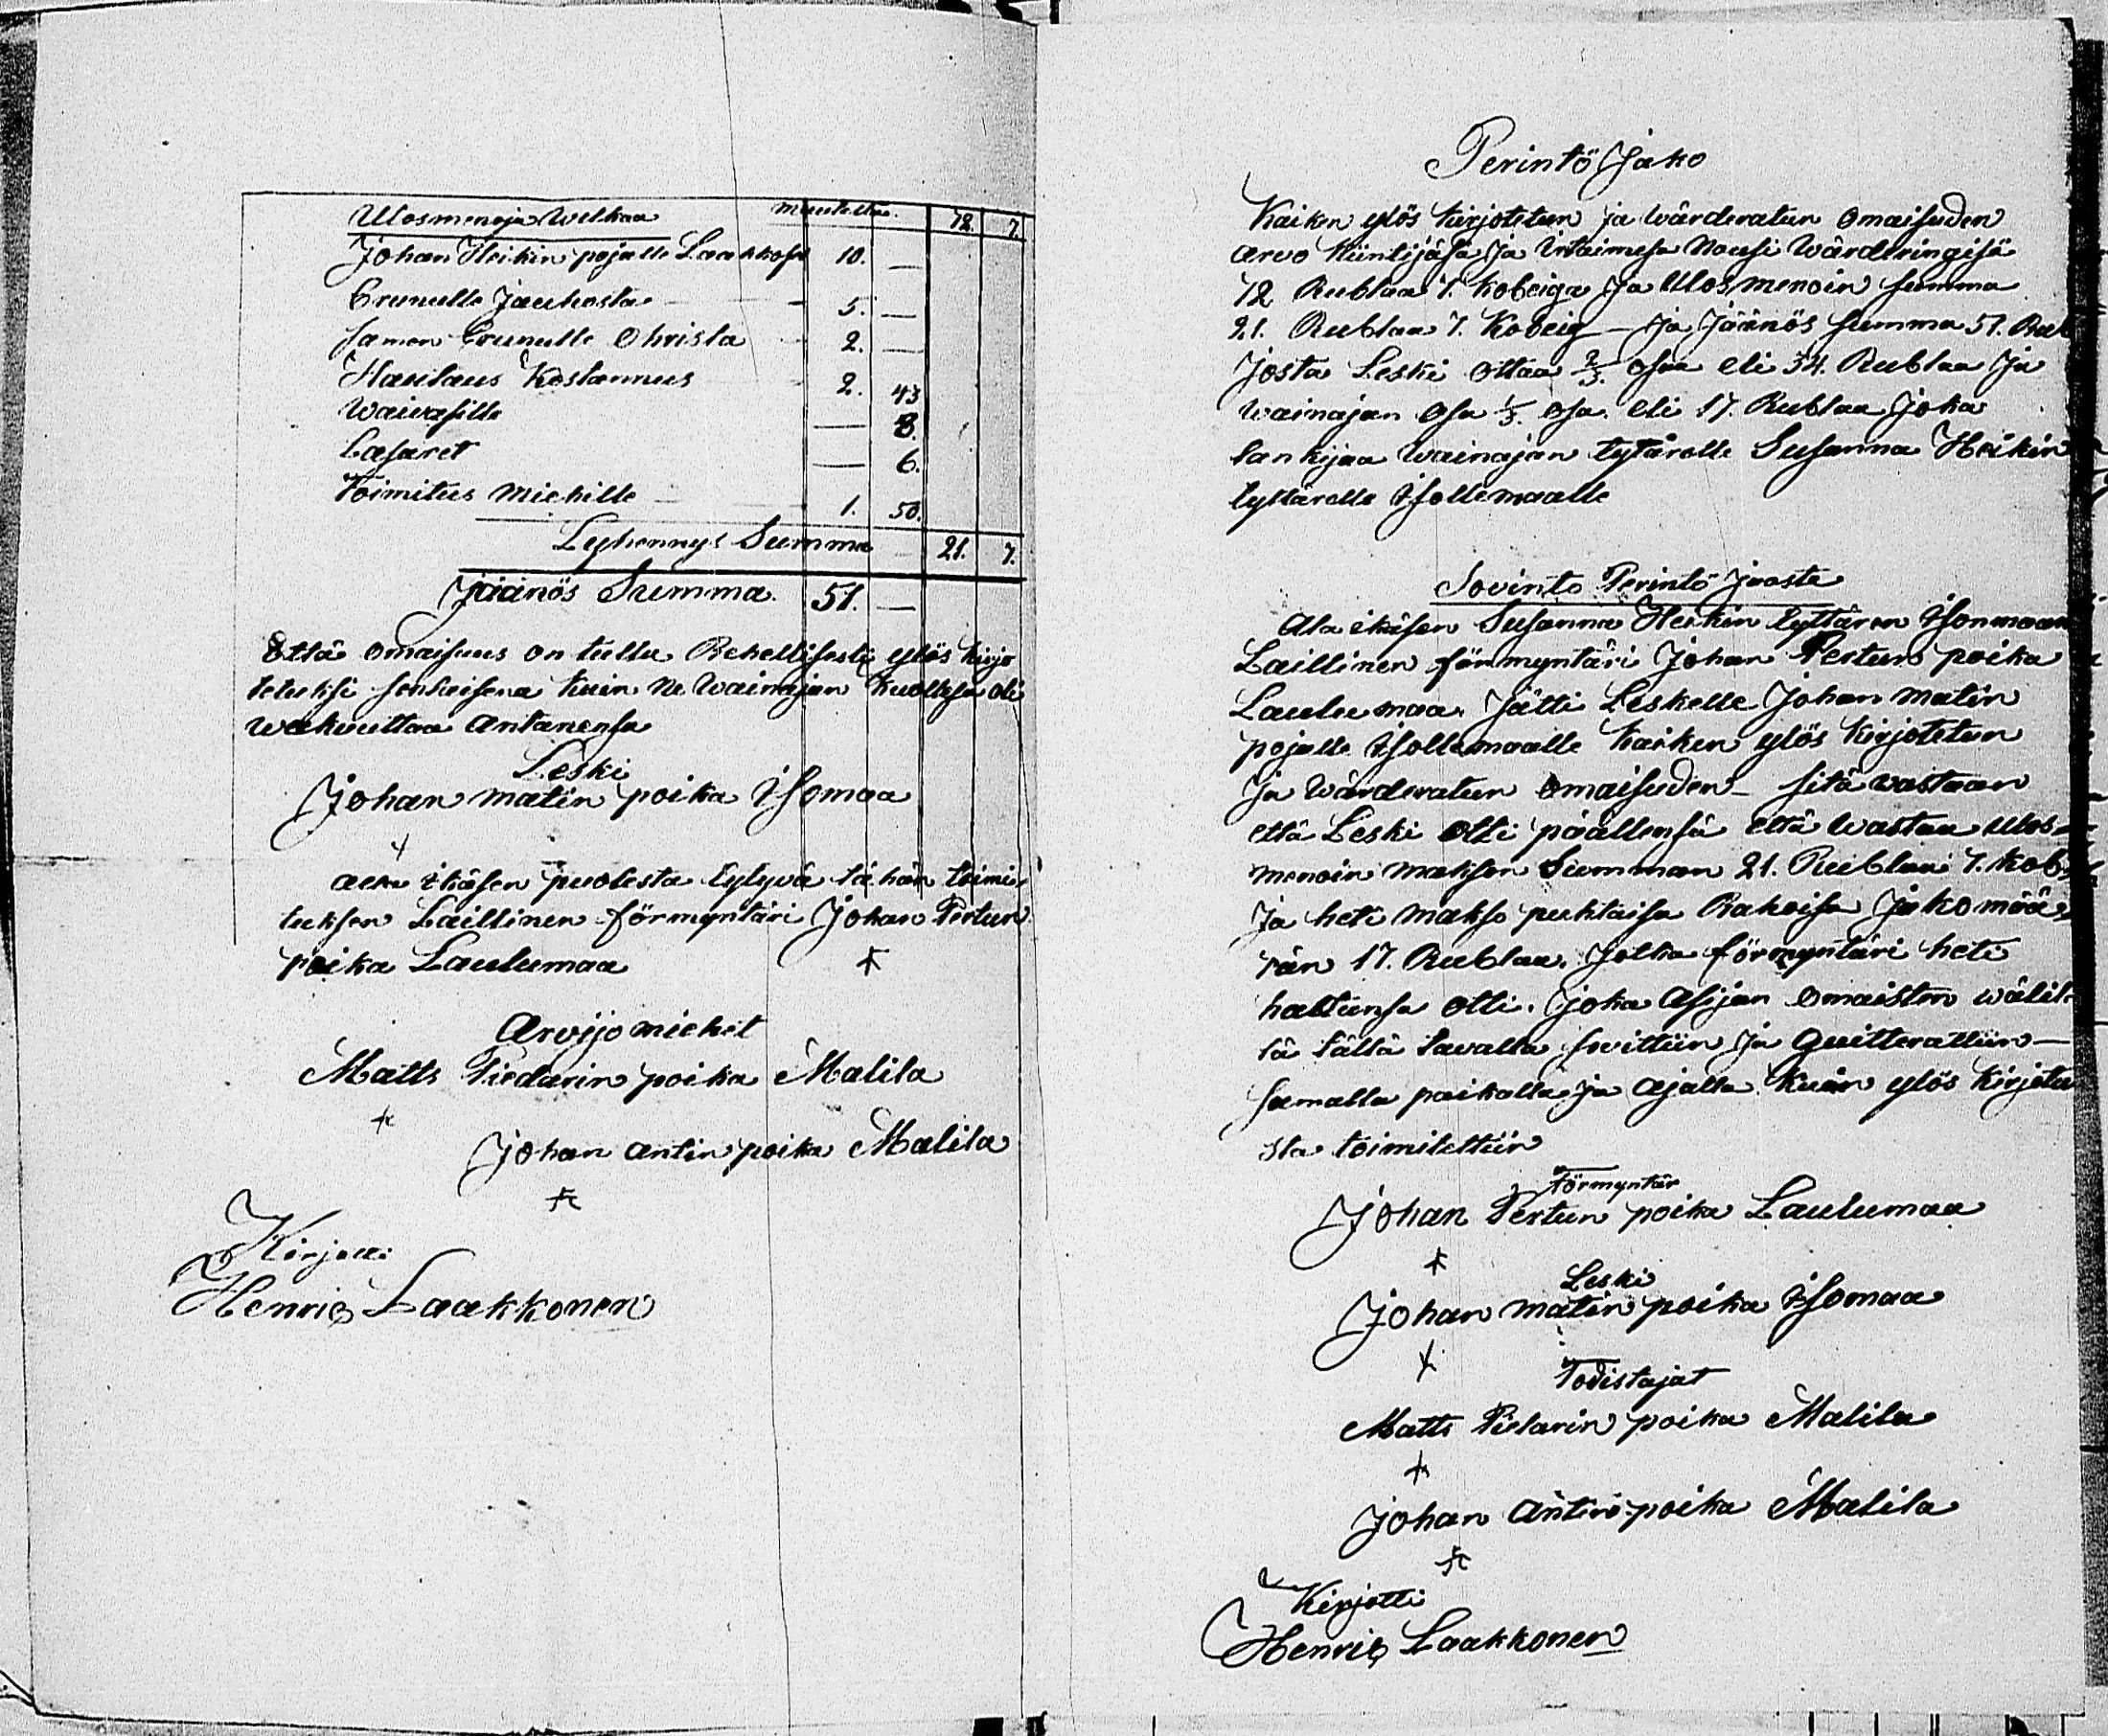 Ulosmenoja Welkaa muutettu. 72. 7.
Johan Heikin pojalle Laakkose 10. —
Crunulle Jauhosta 5. —
samon Crunulle Ohrista 2. —
Hautaus Kostannus 2. 43
Waivasille — 8.
Lasaret — 6.
Toimitus Miehille 1. 50.
Lyhennys Summa 21. 7.
Jäänös Summa. 51. —
Että Omaisuus on tullu Rehellisesti ylös kirjo
tetuksi senkaisena kuin ne Wainajan kuollesa oli
wakuuttaa antanensa
Leski
Johan matin poika Isomaa
ala ikäsen puolesta tytyvä tähän toimi
tuksen Laillinen förmyntäri Johan Pertun
poika Laulumaa
Arvijo miehet
Matts Piedarin poika Malila
Johan Antin poika Malila
Kirjotti
Henric Laakkonen
Perintö Jako
Kaiken ylös kirjotetun ja wärderatun Omaisuden
arvo kiintijäsä ja irtaimesa Nousi Wärderingisä
72 Rublaa 7. Kobeiga ja Ulosmenoin summa
21. Rublaa 7. Kobeig — ja Jäänös summa 51. Rub
Josta Leski Ottaa 2/3. osaa eli 34. Rublaa Ja
Wainajan Osa 1/3. osa. eli 17. Rublaa Joka
lankijaa Wainajan tytärelle Susanna Heikin
tyttärelle Isollemaalle
Sovinto Perintö Jaosta
Ala ikäsen Susanna Heikin tyttären Isonmaan
Laillinen förmyntäri Johan Pertun poika
Laulumaa. Jätti Leskelle Johan matin
pojalle Isollemaalle kaiken ylös kirjotetun
Ja Wärderatun Omaisuden — sitä wastaan
että Leski Otti päällensä että wastaa Ulos-
menoin makson Summan 21. Rublaa 7. kob.
Ja heti makso puhtaisa Rahoisa Jako mää-
rän 17. Rublaa. Jotka förmyntäri heti
haltunsa otti. Joka Asijan Omaisten wälil-
lä tällä tavalla sovittiin Ja Quitterattiin —
samalla paikalla ja ajalla kuin ylös kirjotu
sta toimitettiin
Förmyntär
Johan Pertun poika Laulumaa
Leski
Johan matin poika Isomaa
Todistajat
Matts Pietarin poika Malila
Johan Antin poika Malila
Kirjotti
Henric Laakkonen